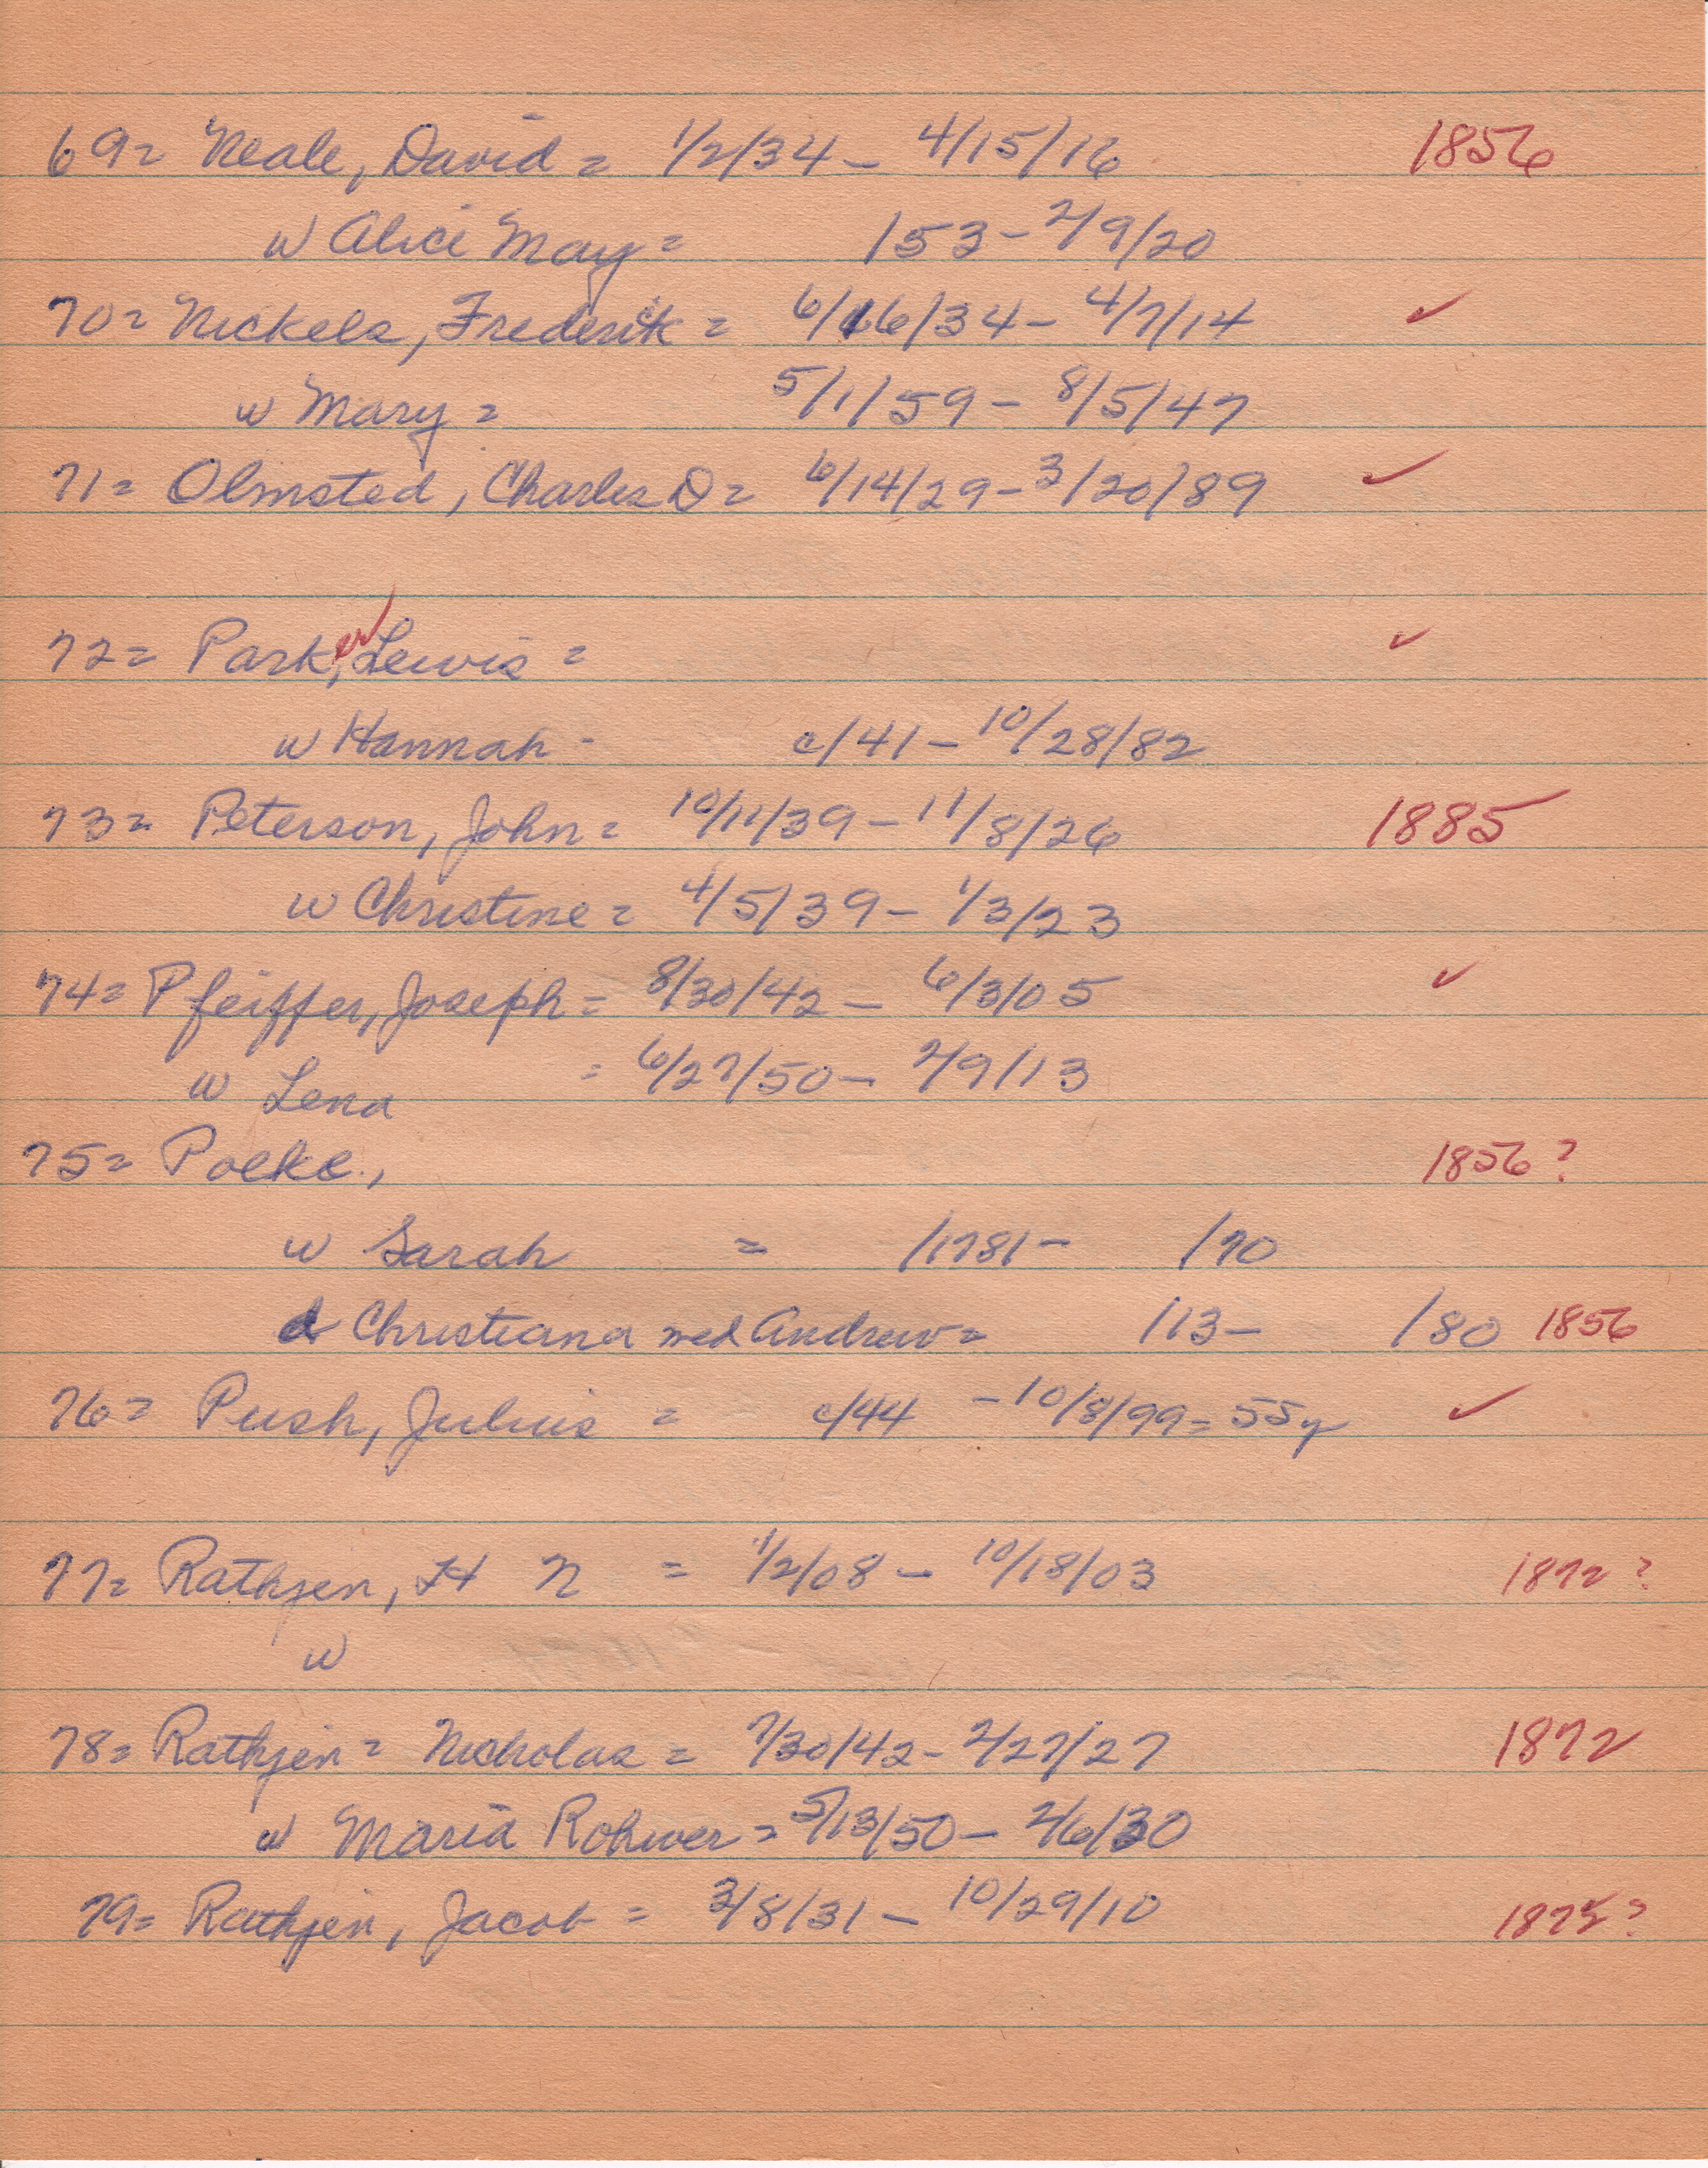 69= Neale, David = 1/2/34 - 4/15/16 1856
w Alice May = /53 - 2/9/20
70= Nickels, Frederick = 6/16/34 - 4/7/14 ✓
w Mary = 5/1/59 - 8/5/47
71= Olmsted, Charles D = 6/14/29 - 3/20/89 ✓
72= Parker, Lewis = ✓
w Hannah - c/41 - 10/28/82
73= Peterson, John = 10/11/39 - 11/8/26 1885
w Christine = 4/5/39 - 1/3/23
74= Pfeiffer, Joseph = 8/30/42 - 6/3/05 ✓
w Lena = 6/27/50 - 2/9/13
75= Poelke, 1856 ?
w Sarah = /1781 - /70
d Christiana med Andrew = /13 - /80 1856
76= Push, Julius = c/44 - 10/8/99 = 55y ✓
77= Rathjen, H N = 1/2/08 - 10/18/03 1872 ?
w
78= Rathjen = Nicholas = 7/30/42 - 2/27/27 1872
w Maria Rohwer = 5/13/50 - 2/6/30
79= Rathjen, Jacob = 3/8/31 - 10/29/10 1875 ?